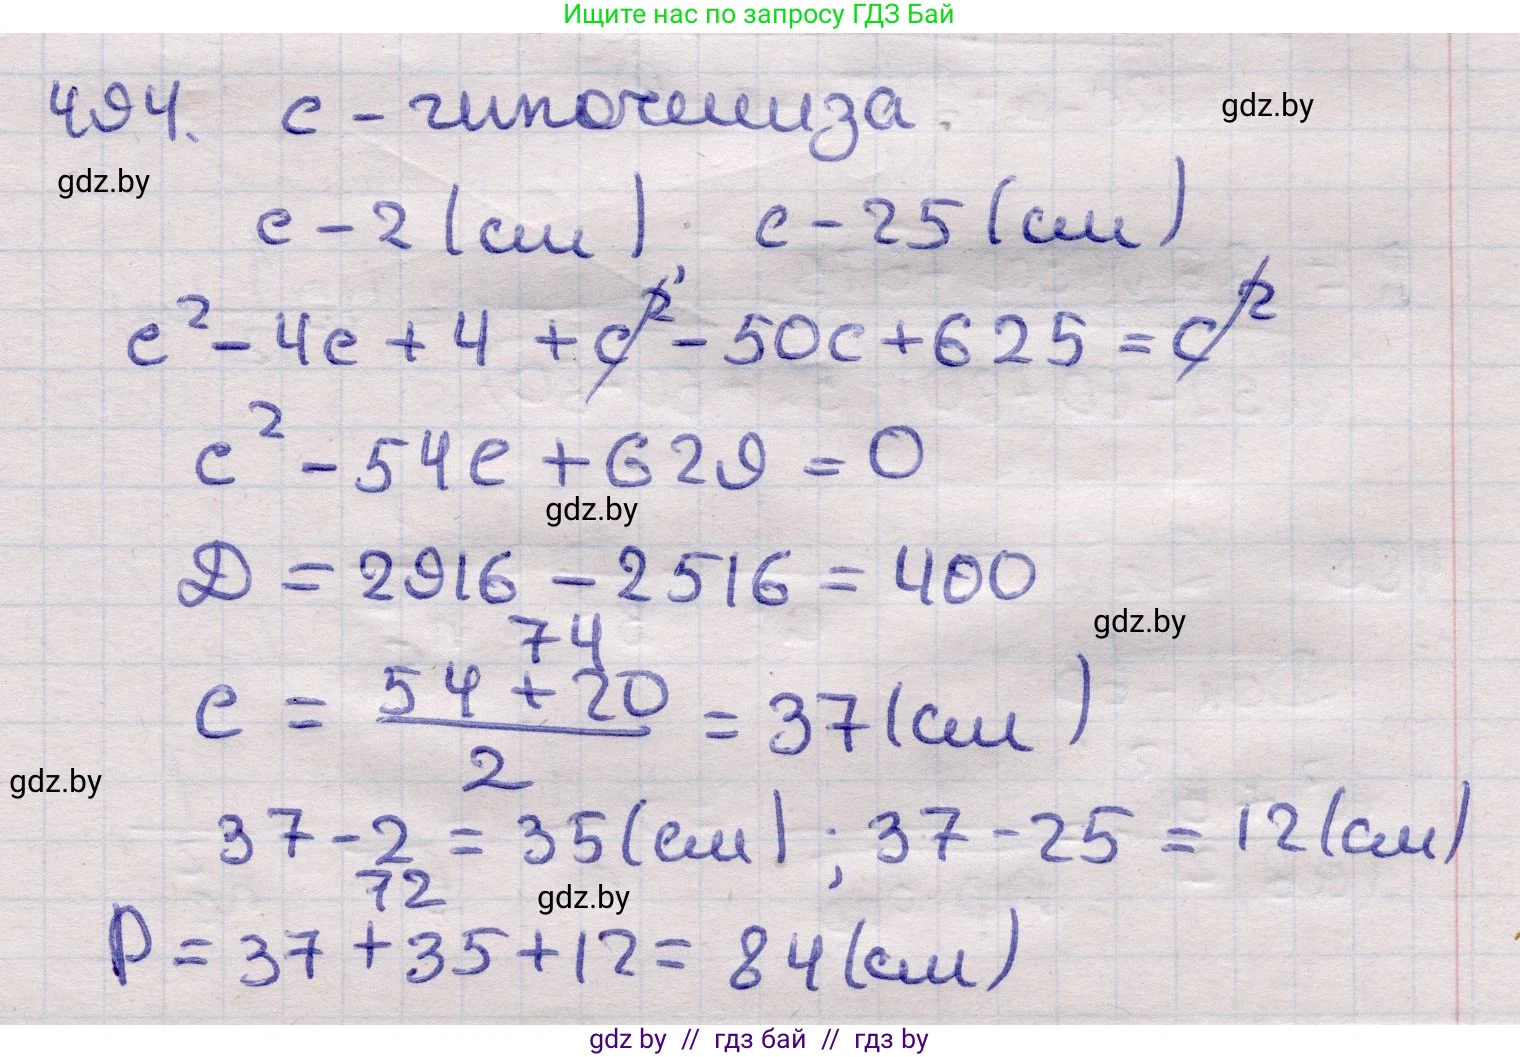 Ищите нас по запросу ГДЗ Бай
494. c - гипотенуза
gdz.by
gdz.by
c - 2 (см); c - 25 (см)
c² - 4c + 4 + c² - 50c + 625 = c²
c² - 54c + 629 = 0
gdz.by
D = 2916 - 2516 = 400
gdz.by
74
c = (54 + 20)/2 = 37 (см)
gdz.by
37 - 2 = 35 (см); 37 - 25 = 12 (см)
72
gdz.by
P = 37 + 35 + 12 = 84 (см)
gdz by // гдз бай // гдз by